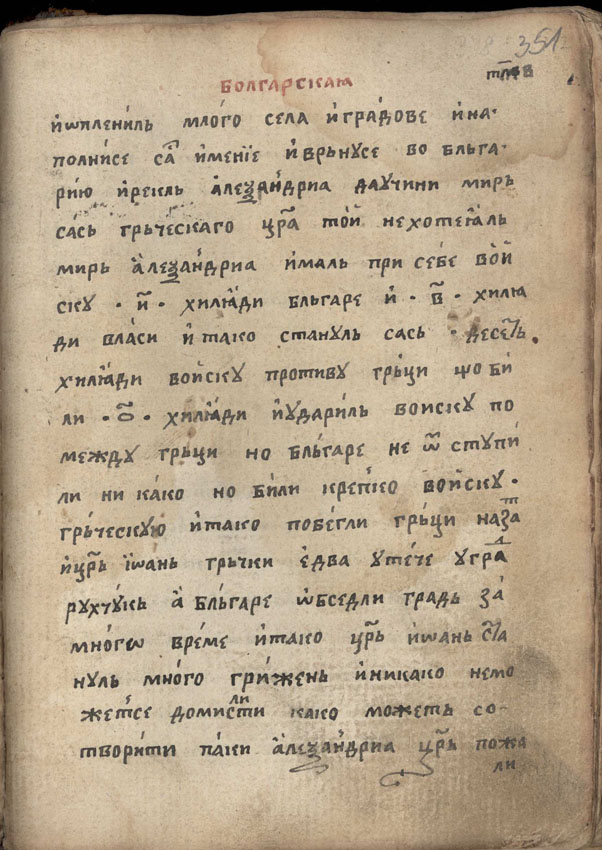 351
тл҃в
БОЛГАРСКАꙗ
и҆ѡплениль мло́го села и҆гра́дове и҆на-
полни́се са̑ и҆мени́е и҆врьнусе во бльга-
рию и҆рекль а҆леѯа́н҆дриа даучини мирь
са́сь грьческаго цр҃а той нехотеꙗ́ль
мирь а҆леѯа́н҆дриа и҆маль при себе вой
ску · и҃ · хилꙗ́ди бльгаре и҆ · в҃ · хилꙗ
ди вла́си и҆тако стануль сась · десеть
хилꙗ́ди войску противу грьци що би
ли · о҃ · хилꙗ́ди и҆ударі́ль воиску по
между грьци но бль́гаре не ѿ ступи́
ли ни ка́ко но били крепко войску ·
грь́ческую и҆тако побегли грь́ци наза
и҆црь҃ і҆ѡань грьчки е҆два уте́че угра
рухчукь а҆ бль́гаре ѡ҆бседли традь за́
мно́гѡ време и҆тако црь҃ и҆ѡань ста
нуль мно́го гри́жень и҆никако немо
жетсе домислити како можеть со-
твори́ти па́ки а҆леѯа́н҆дриа црь҃ пожа
ли